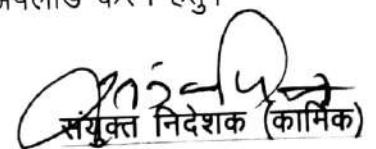 करने हेतु।
संयुक्त निदेशक (कार्मिक)